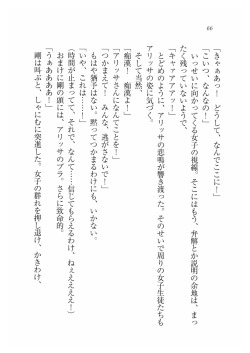 66
「きゃああっ！　どうして、なんでここに！」
「こいつ、なんなの！」
いっせいに向かってくる女子の視線。そこにはもう、弁解とか説明の余地は、まっ
たく残っていないようで、
「キャァァアアッ！」
とどめのように、アリッサの悲鳴が響き渡った。そのせいで周りの女子生徒たちも
アリッサの姿に気づく。
そして当然、
「痴漢！　痴漢よ！」
「アリッサさんになんてことを！」
「つかまえて！　みんな、逃がさないで！」
もはや猶予はない。黙ってつかまるわけにも、いかない。
「いや、これは……！」
（時間が止まってて、それで、なんて……信じてもらえるわけ、ねぇええええ！）
おまけに剛の頭には、アリッサのブラ。さらに致命的。
「うああああああ！」
剛は叫ぶと、しゃにむに突進した。女子の群れを押し退け、かきわけ、